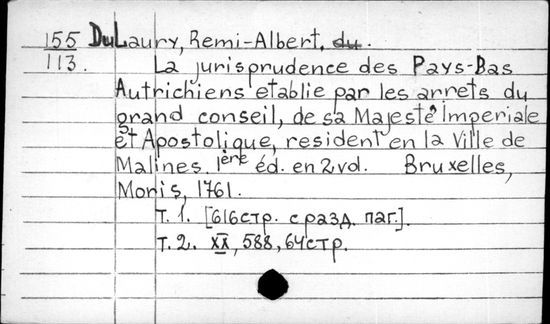 155 DuLaury, Remi-Albert, du.
113. La jurisprudence des Pays-Bas
Autrichiens etablie par les arrets du
grand conseil, de sa Majesté Imperiale
et Apostolique, resident en la Ville de
Malines. 1ère éd. en 2 vd. Bruxelles,
Moris, 1761.
Т. 1. [616 стр. с разд. паг.].
Т. 2. XX, 588, 64 стр.